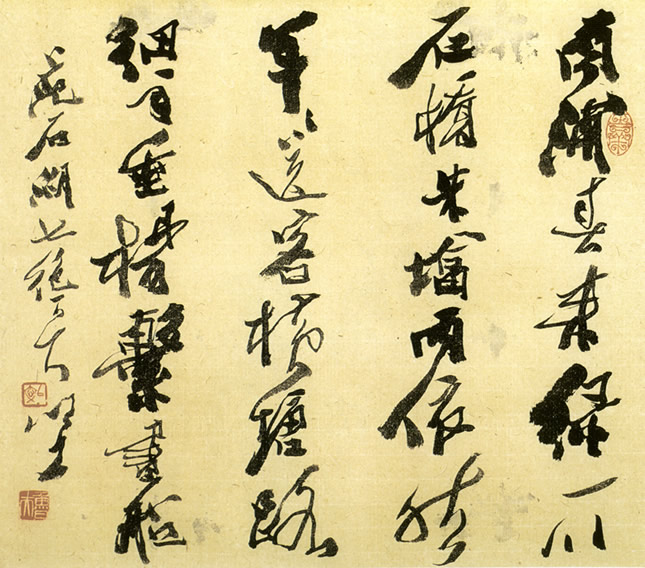 南浦春來綠一川
石橋朱墖兩依然
年〻送客橫塘路
細雨垂楊繫畫船
范石湖七絕一首